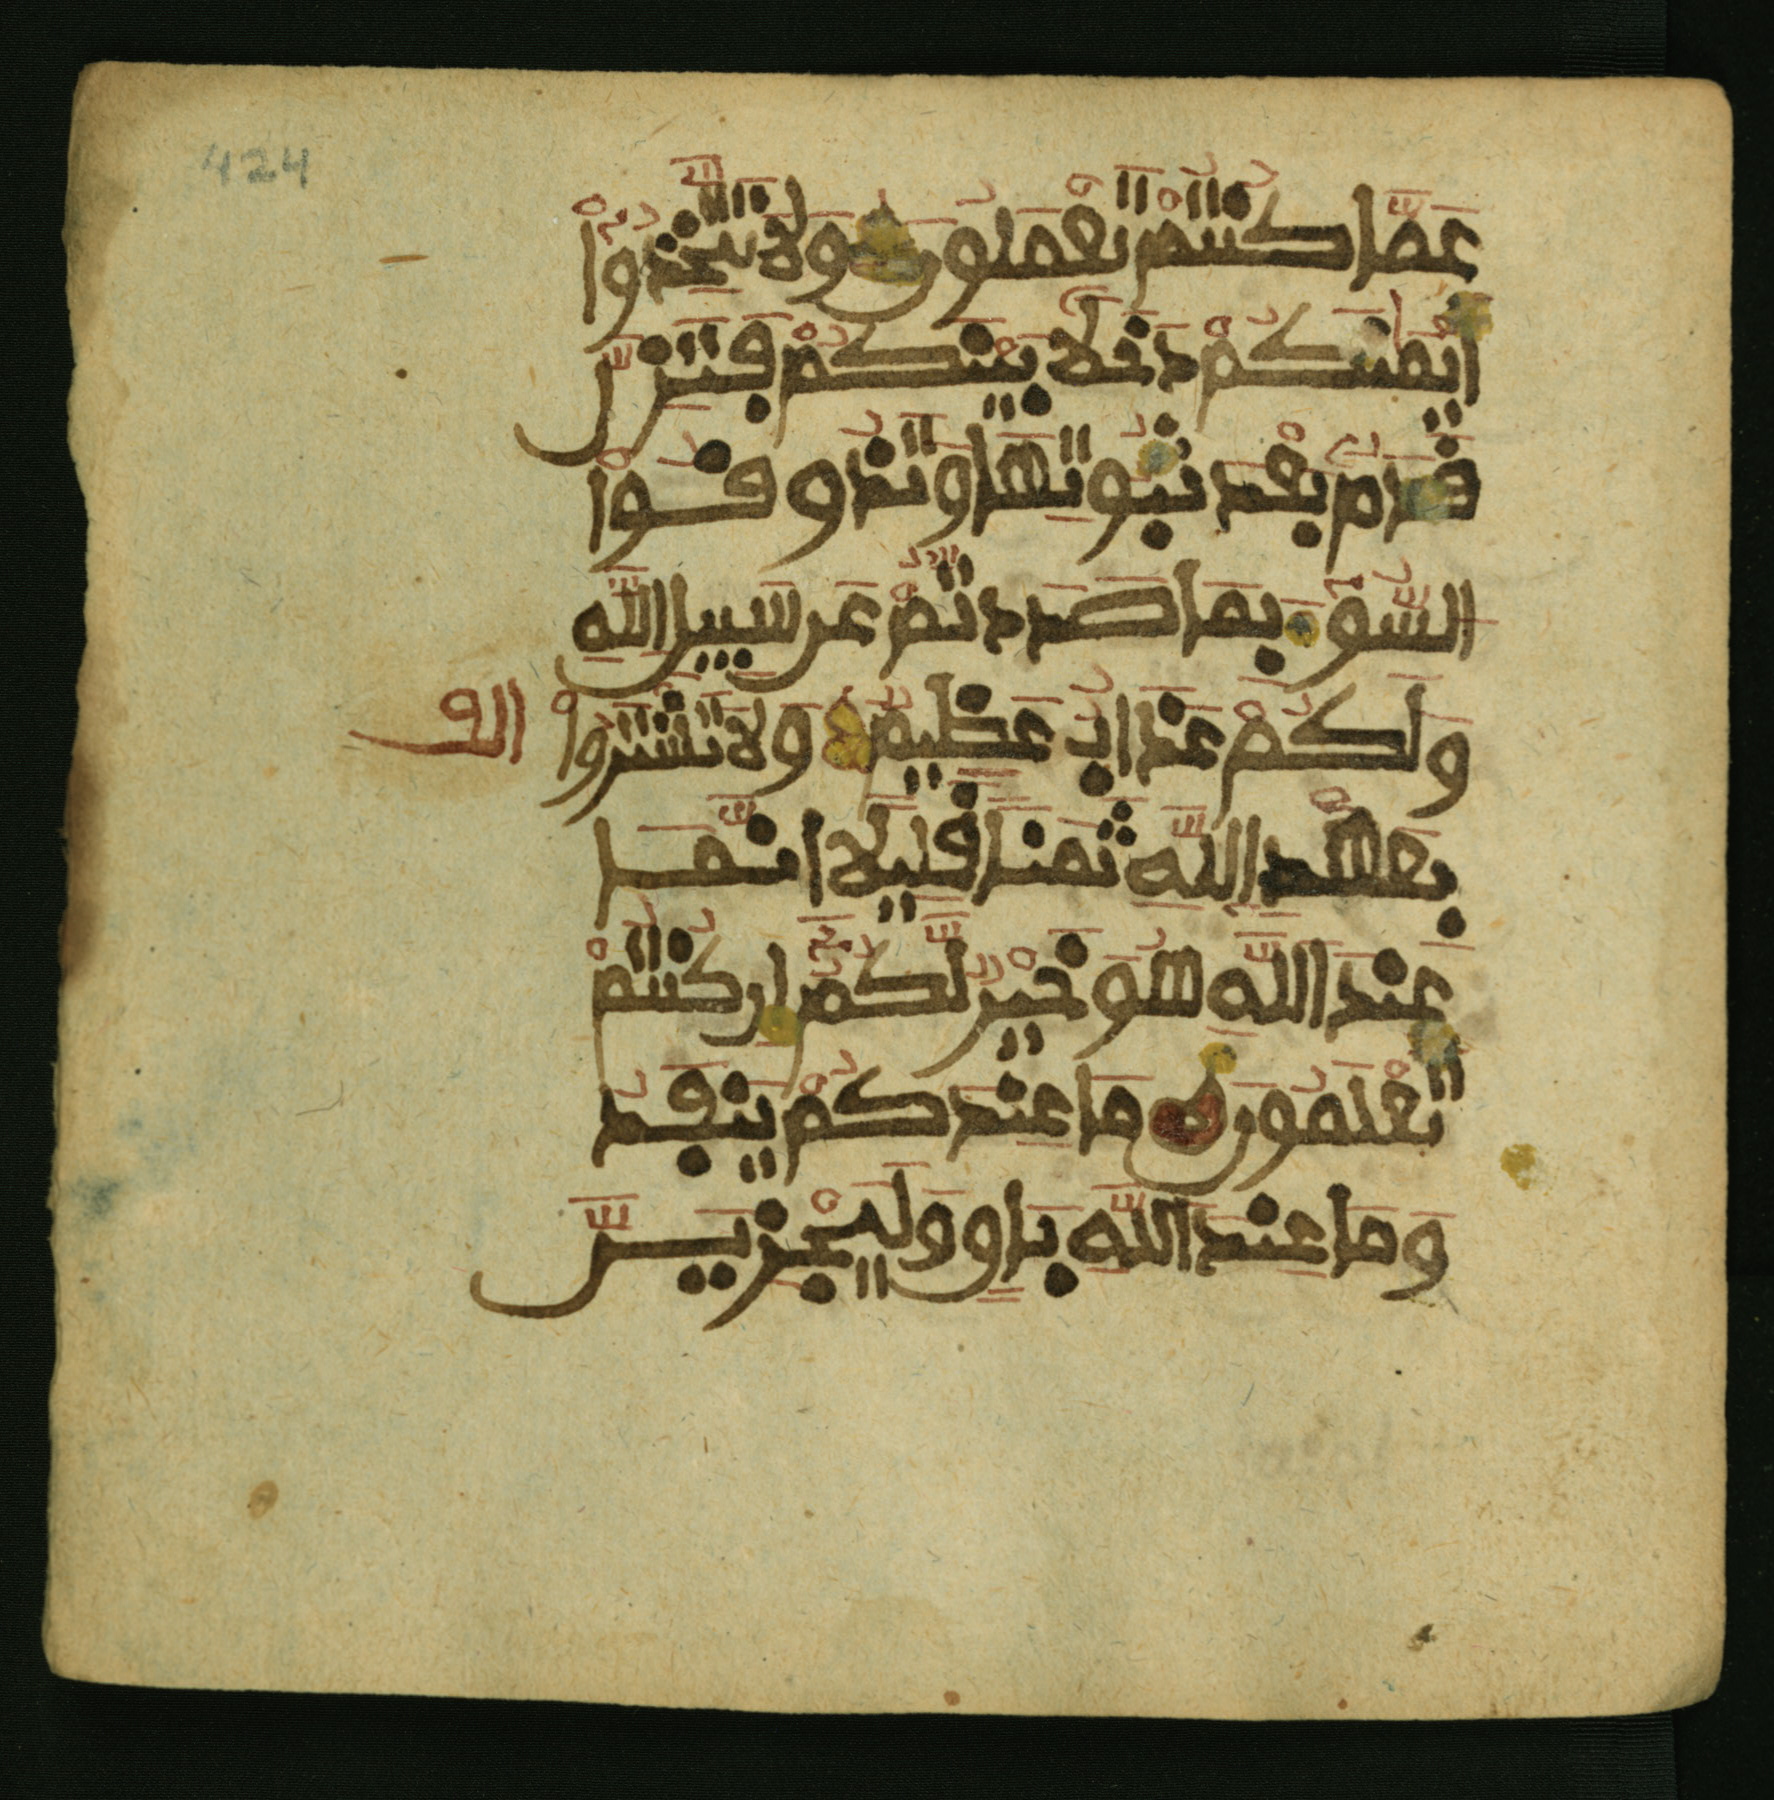 424
عَمَّا كُنتُمْ تَعْمَلُونَ وَلَا تَتَّخِذُوٓا
أَيْمَٰنَكُمْ دَخَلًا بَيْنَكُمْ فَتَزِلَّ
قَدَمٌ بَعْدَ ثُبُوتِهَا وَتَذُوقُوا
السُّوٓءَ بِمَا صَدَدتُّمْ عَن سَبِيلِ اللَّهِ
وَلَكُمْ عَذَابٌ عَظِيمٌ وَلَا تَشْتَرُوا
بِعَهْدِ اللَّهِ ثَمَنًا قَلِيلًا إِنَّمَا
عِندَ اللَّهِ هُوَ خَيْرٌ لَّكُمْ إِن كُنتُمْ
تَعْلَمُونَ مَا عِندَكُمْ يَنفَدُ
وَمَا عِندَ اللَّهِ بَاقٍ وَلَيَجْزِيَنَّ